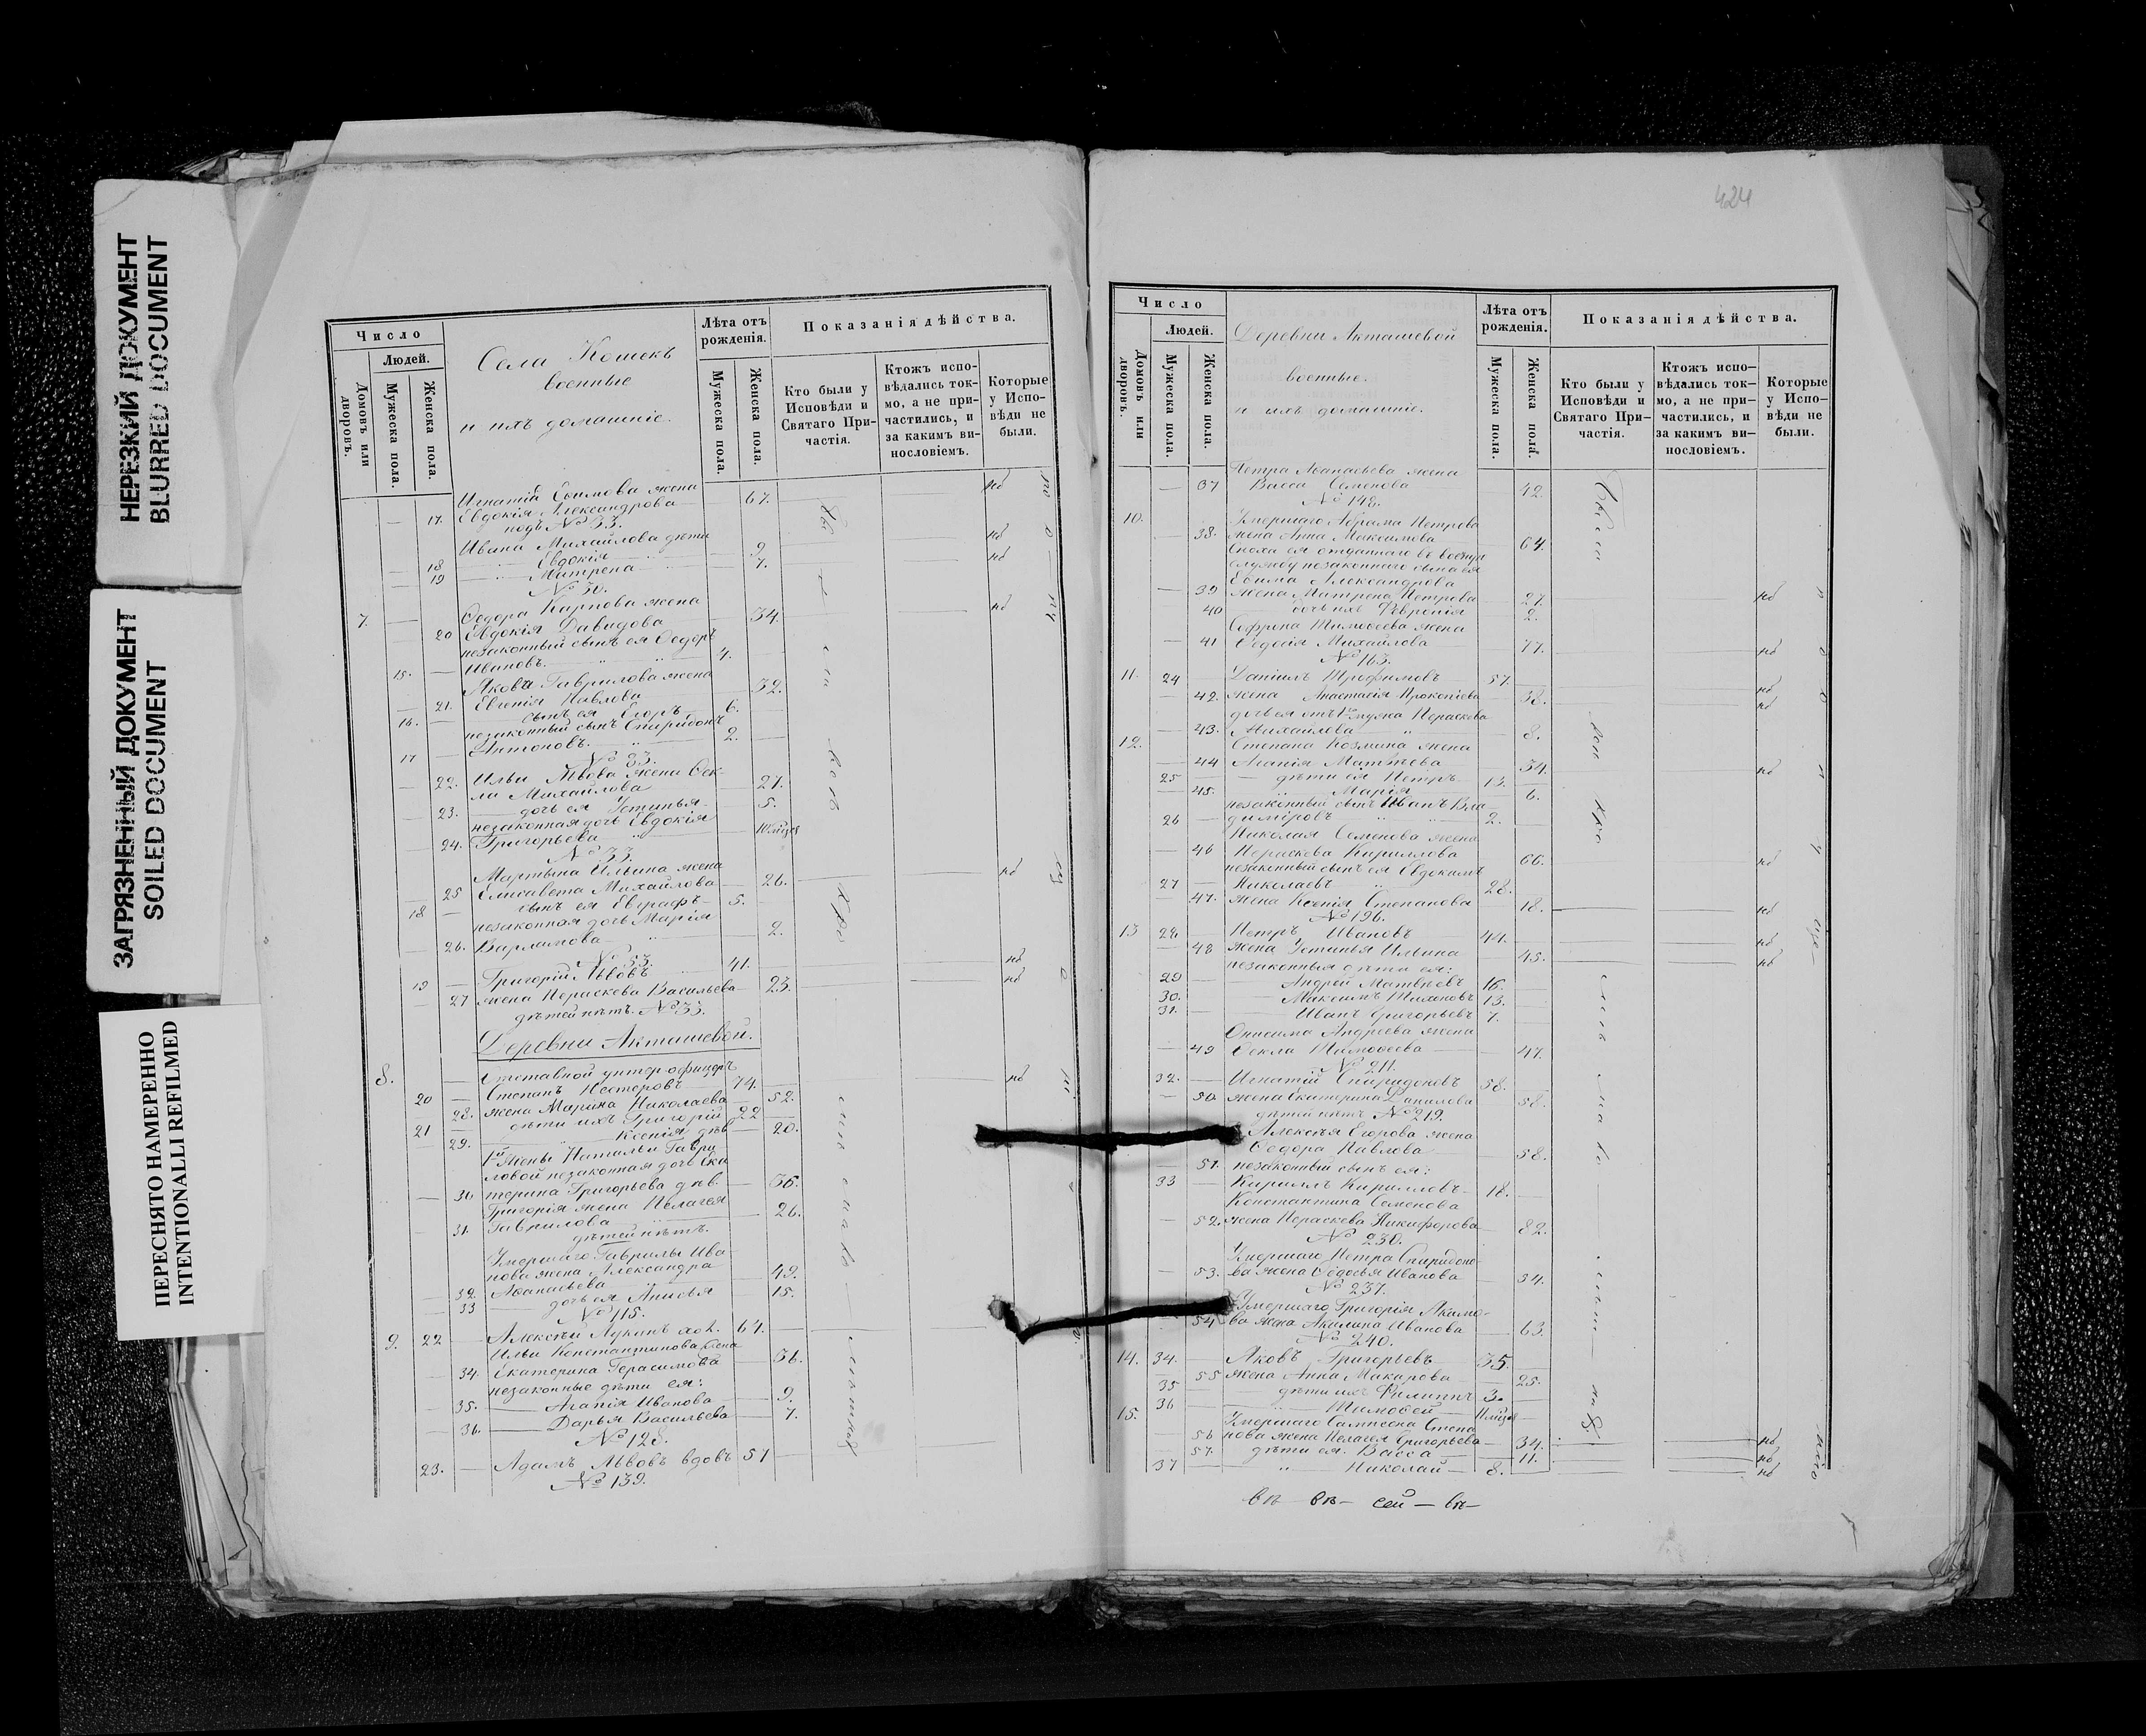 НЕРЕЗКИЙ ДОКУМЕНТ
BLURRED DOCUMENT
ЗАГРЯЗНЕННЫЙ ДОКУМЕНТ
SOILED DOCUMENT
ПЕРЕСНЯТО НАМЕРЕННО
INTENTIONALLI REFILMED
Число
Людей.
Домовъ или дворовъ.
Мужеска пола.
Женска пола.
Села Кошекъ
военные
и ихъ домашніе.
Лѣта отъ рожденія.
Мужеска пола.
Женска пола.
Показанія дѣйства.
Кто были у Исповѣди и Святаго При-частія.
Ктожъ испо-вѣдались ток-мо, а не при-частились, и за какимъ ви-нословіемъ.
Которые у Испо-вѣди не были.
Игнатій Ефимова жена
17. Евдокія Александрова 67.
подъ № 33.
Ивана Михайлова дѣти
18 Евдокія 9.
19 Матрена 7.
№ 30.
7. Ѳедора Карпова жена
20 Евдокія Давидова 34.
незаконный сынъ ея Ѳедоръ
15. Ивановъ. 4.
Якова Гаврилова жена
21. Евгенія Павлова 32.
16. сынъ ея Егоръ 6.
незаконный сынъ Спиридонъ
17 Антоновъ. 2.
№ 83.
22. Ильи Львова жена Ѳек-
ли Михайлова 27.
23. дочь ея Устинья 5.
незаконная дочь Евдокія
24. Григорьева
№ 33.
Мартына Ильина жена
25 Елисавета Михайлова 26.
18 сынъ ея Евграфъ 5.
незаконная дочь Марія
26. Варламова 2.
№ 53.
19 Григорій Львовъ 41.
27 жена Параскева Васильева 23.
дѣтей нѣтъ. № 33.
Деревни Акташевой.
8. Отставной унтер-офицеръ
20 Степанъ Нестеровъ 74.
28. жена Марина Николаева 52.
21 дѣти ихъ Григорій 22
29. Ксенія дѣв. 20.
1й жены Натальи Гаври
ловой незаконная дочь Ека
30 терина Григорьева дѣв. 36.
Григорія жена Пелагея
31. Гаврилова 26.
дѣтей нѣтъ.
Умершаго Гаврилы Ива-
нова жена Александра
32. Аѳанасьева 49.
33 дочь ея Анисья 15.
№ 115.
9. 22 Алексѣй Лукинъ хол. 64.
Ильи Константинова жена
34. Екатерина Герасимова 36.
незаконные дѣти ея:
35. Агапія Иванова 9.
36. Дарья Васильева 7.
№ 128.
23. Адамъ Львовъ вдовъ 57
№ 139.
424
Число
Людей.
Домовъ или дворовъ.
Мужеска пола.
Женска пола.
Деревни Акташевой
военные.
и ихъ домашніе.
Лѣта отъ рожденія.
Мужеска пола.
Женска пола.
Показанія дѣйства.
Кто были у Исповѣди и Святаго При-частія.
Ктожъ испо-вѣдались ток-мо, а не при-частились, и за какимъ ви-нословіемъ.
Которые у Испо-вѣди не были.
Петра Аѳанасьева жена
37 Васса Семенова 42.
№ 148.
10. Умершаго Абрама Петрова
38. жена Анна Максимова 64.
Сноха ея отданнаго въ военную
службу незаконнаго сына ея
Ефима Александрова
39 жена Матрена Петрова 27.
40 дочь ихъ Ѳевронія 2.
Тимоѳеева жена
41 Ѳедосія Михайлова 77.
№ 163.
11. 24 Даніилъ Трофимовъ 57.
42. жена Анастасія Прокопіева 38.
дочь ея отъ 1го мужа Параскева
43. Михайлова 8.
12. Степана Козмина жена
44 Агапія Матвѣева 34.
25 дѣти ея Петръ 13.
45. Марія 6.
незаконный сынъ Иванъ Вла
26 диміровъ 2.
Николая Семенова жена
46 Параскева Кириллова 66.
незаконный сынъ ея Евдокимъ
27 Николаевъ 28.
47. жена Ксенія Степанова 18.
№ 196.
13 28 Петръ Ивановъ 44.
48 жена Устинья Ильина 45.
незаконныя дѣти ея:
29 Андрей Матвѣевъ 16.
30. Максимъ Тихановъ 13.
31. Иванъ Григорьевъ 7.
Онисима Андреева жена
49 Ѳекла Тимоѳеева 47.
№ 211.
32. Игнатій Спиридоновъ 58.
50 жена Екатерина Данилова 58.
дѣтей нѣтъ № 219.
Алексѣя Егорова жена
51. Ѳедора Павлова 58.
незаконный сынъ ея:
33 Кириллъ Кирилловъ 18.
Константина Семенова
52. жена Параскева Никифорова 82.
№ 230.
Умершаго Петра Спиридоно-
53. ва жена Ѳедосья Иванова 34.
№ 237.
Умершаго Григорія Акимо-
54 ва жена Акилина Иванова 63.
№ 240.
14. 34. Яковъ Григорьевъ 35.
55 жена Анна Макарова 25.
35 дѣти ихъ Филиппъ 3.
36 Тимоѳей
15. Умершаго Сампсона Степа
56 нова жена Пелагея Григорьева 34.
57. дѣти ея: Васса 11.
37 Николай 8.